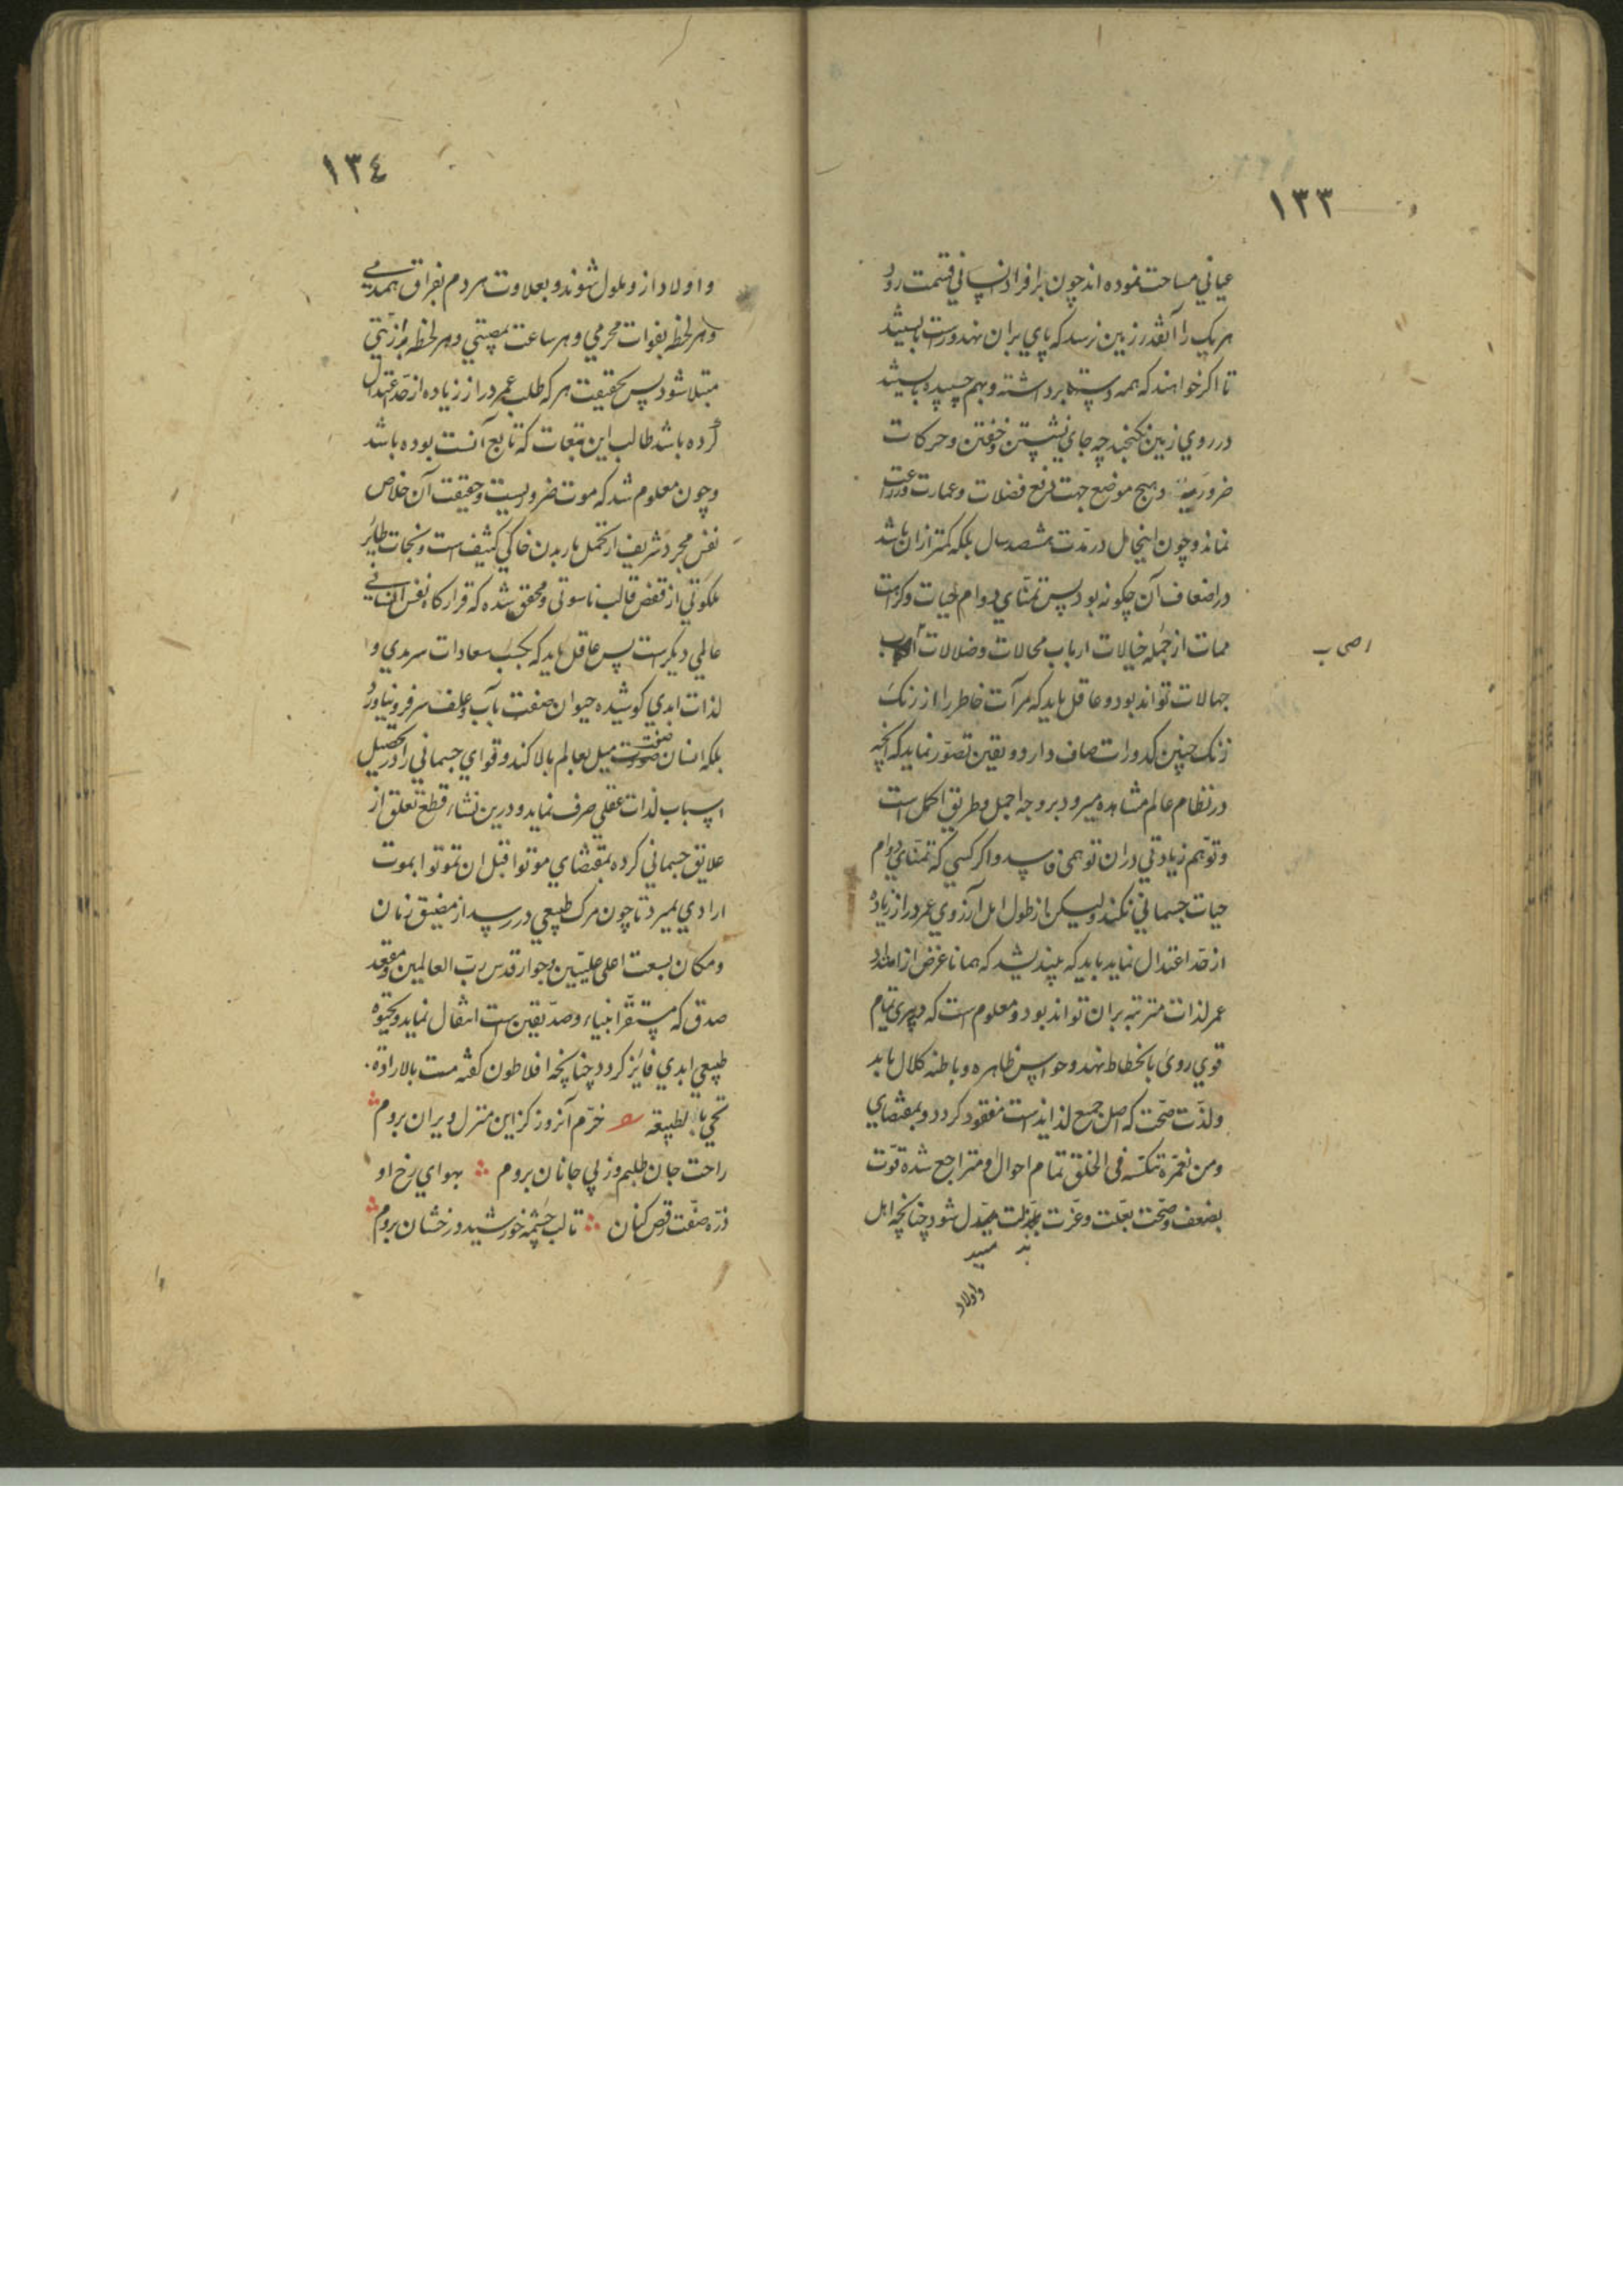 ١٣٣
عیاني مساحت نموده اند چون بر افراد انساني قسمت رود
هر یک را آنقدر زمین نرسد که پاي بران نهد و راست بایستد
تا اکر خواهند که همه دستها برداشته و بهم چسپیده بایستند
در روي زمین نکنجند چه جاي نشستن و خفتن و حرکات
ضروریه و هیچ موضع جهت دفع فضلات و عمارت و زراعت
نماند و چون اینحال در مدّت ششصد سال بلکه کمتر ازان باشد
در اضعاف آن چکونه بود پس تمنّاي دوام حیات و کراهت
ممات از جمله خیالات ارباب محالات و ضلالات
اصحاب
جهالات تواند بود و عاقل باید که مرآت خاطر را از زنک
زنک چنین کدورات صاف دارد و یقین تصوّر نماید که آنچه
در نظام عالم مشاهده میرود بر وجه اجمل و طریق اکمل است
و توّهم زیادتي دران توهمی فاسد و اکر کسي که تمنّاي دوام
حیات جسماني نکند ولیکن از طول امل آرزوي عمر دراز زیاده
از حدّ اعتدال نماید باید که بیندیشد که همانا غرض از امتداد
عمر لذات مترتبه بران تواند بود و معلوم است که در پیری تمام
قوي روي بانحطاط نهد و حواس ظاهره و باطنه کلال یابد
و لذّت صحّت که اصل جمیع لذایذ است مفقود کردد و بمقتضاي
و من نعمّره ننکسّه فی الخلق تمام احوال او متراجع شده قوّت
بضعف و صحّت بعلّت و عزّت بمذلت مبدّل شود چنانچه اهل
واولاد
١٣٤
و اولاد ازو ملول شوند و بعلاوت هر دم بفراق همدمي
و هر لحظه بفوات محرمي و هر ساعت بمصیبتي و هر لحظه برزیّتي
مبتلا شود پس بحقیقت هر که طلب عمر دراز زیاده از حدّ اعتدال
کرده باشد طالب این تبعات که تابع آنست بوده باشد
و چون معلوم شد که موت ضروریست و حقیقت آن خلاص
نفس مجرد شریف از تحمل بار بدن خاکي کثیف است و نجات طایر
ملکوتي از قفص قالب ناسوتی و محقق شده که قرارکاه نفس انساني
عالمي دیکر است پس عاقل باید که بکسب سعادات سرمدي و
لذات ابدي کوشیده حیوان صفت بآب و علف سر فرو نیاورد
بلکه انسان صفت میل بعالم بالا کند و قواي جسماني را در تحصیل
اسباب لذات عقلي صرف نماید و درین نشاء قطع تعلق از
علایق جسماني کرده بمقتضاي موتوا قبل ان تموتوا بموت
ارادي بمیرد تا چون مرک طبیعي در رسد از مضیق زمان
و مکان بسعت اعلی علیّین و جوار قدس ربّ العالمین و مقعد
صدق که مستقرّ انبیاء و صدّیقین است انتقال نماید و بحیوة
طبیعي ابدي فایز کردد چنانچه افلاطون کفته مت بالارادة
تحي بالطبیعة خرّم آنروز کزاین منزل ویران بروم
راحت جان طلبم وز پي جانان بروم ∴ بهواي رخ او
ذرّه صفت رقص کنان ∴ تا لب چشمه خورشید درخشان بروم